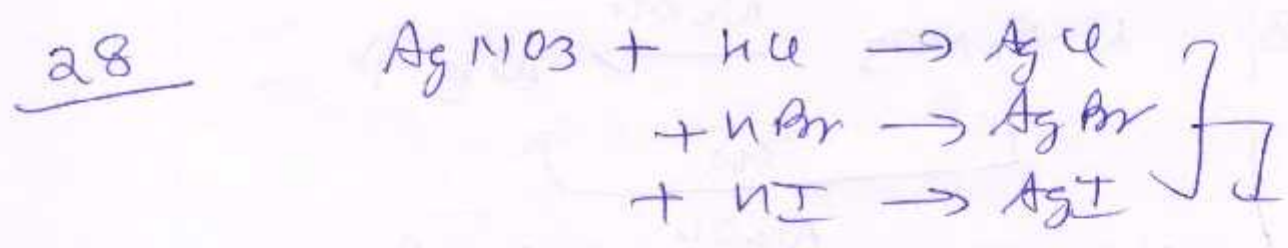 28 AgNO3 + HCl → AgCl
+ HBr → AgBr
+ HI → AgI